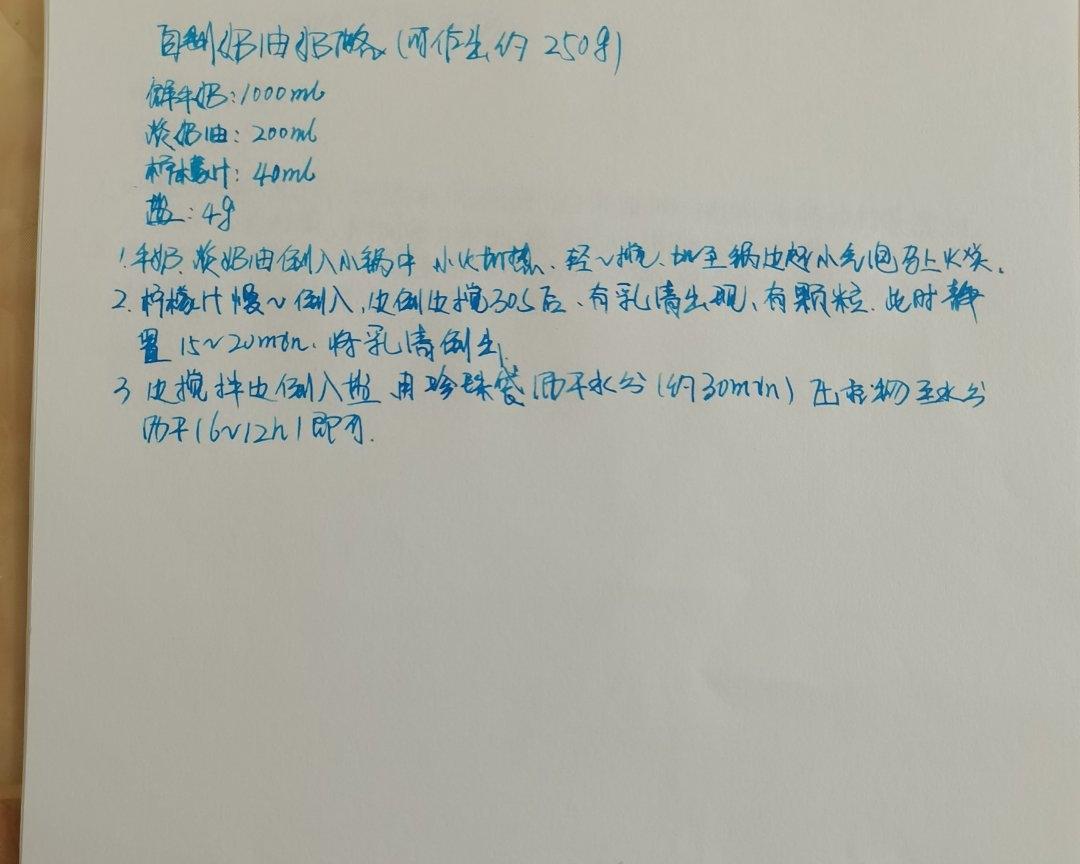 自制奶油奶酪(可作出约250g)
鲜牛奶:1000ml
淡奶油:200ml
柠檬汁:40ml
盐:4g
1.牛奶、淡奶油倒入小锅中 小火加热、轻~搅、加至锅边起小气泡马上火关。
2.柠檬汁慢~倒入、边倒边搅30S后、有乳清出现、有颗粒.此时静
置15~20min.将乳清倒出.
3 边搅拌边倒入盐 用珍珠袋 沥干水分(约30min)压重物至水分
沥干(6~12h)即可.